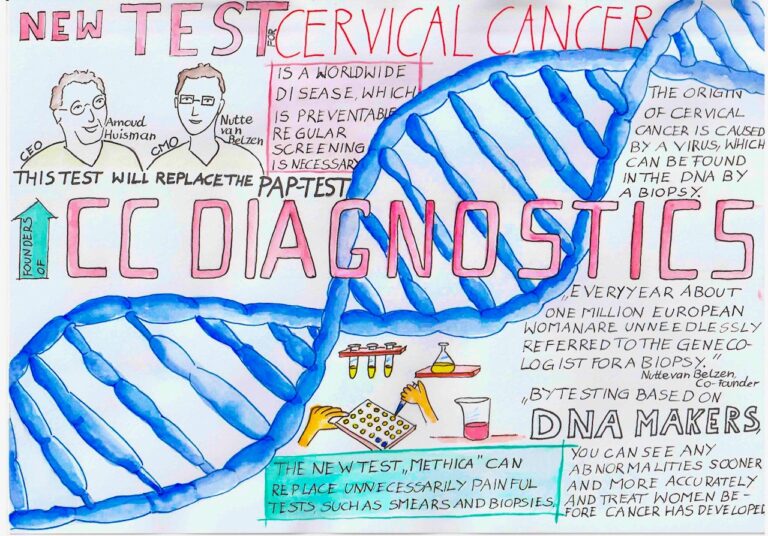 NEW TEST FOR CERVICAL CANCER
IS A WORLDWIDE
DISEASE, WHICH
IS PREVENTABLE
REGULAR
SCREENING
IS NECESSARY
Arnoud
Huisman
CEO
Nutte
van
Belzen
CMO
THE ORIGIN
OF CERVICAL
CANCER IS CAUSED
BY A VIRUS, WHICH
CAN BE FOUND
IN THE DNA BY
A BIOPSY.
THIS TEST WILL REPLACE THE PAP-TEST
FOUNDERS
OF
CC DIAGNOSTICS
„EVERY YEAR ABOUT
ONE MILLION EUROPEAN
WOMAN ARE UNNEEDLESSLY
REFERRED TO THE GENECO-
LOGIST FOR A BIOPSY."
Nutte van Belzen,
Co-Founder
„BY TESTING BASED ON
DNA MAKERS,
YOU CAN SEE ANY
ABNORMALITIES SOONER
AND MORE ACCURATELY
AND TREAT WOMEN BE-
FORE CANCER HAS DEVELOPED
THE NEW TEST „METHICA" CAN
REPLACE UNNECESSARILY PAINFUL
TESTS SUCH AS SMEARS AND BIOPSIES.